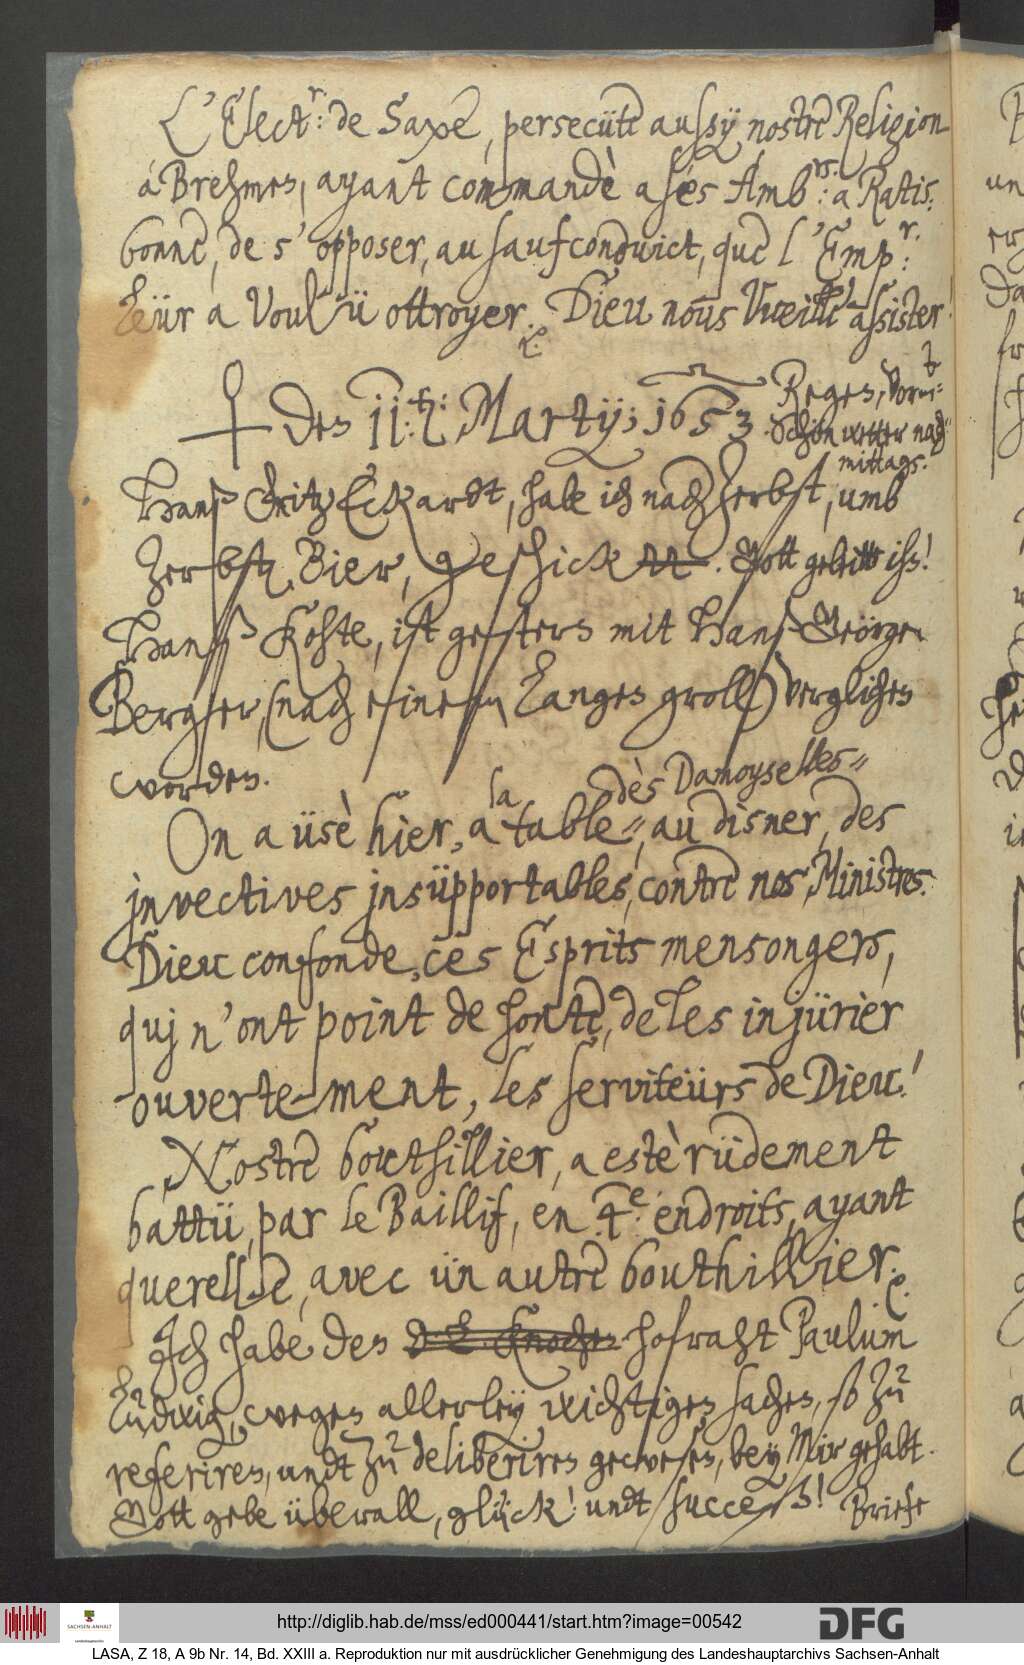 L'Elect^r: de Saxe, persecüte aussÿ nostre Religion
à Brehmen, ayant commandè a ses Amb^rs: a Ratis:
bonne, de s'opposer, au saufconduict, que l'Emp^r:
leür a voulü ottroyer. Dieu nous vueille assister!
⊕ Den 11. Martÿ; 1653. Regen, Vormi:
Schön wetter nach
mittags.
Hanß Fritz Eckardt, habe ich nach Zerbst, umb
Zerbster Bier, geschickt. Gott geleitte ihn!
Hanß Kohte, ist gestern mit Hanß Geörgen
Berger, (nach einem langen groll) verglichen
worden.
On a üsè hier, a la table dès Damoyselles,
au disner, des
jnvectives jnsüpportables, contre nos Ministres.
Dieu confonde, ces Esprits mensongers,
quj n'ont point de honte, de les injürièr
ouvertement, les serviteürs de Dieu!
Nostre bouthillier, a estè rüdement
battü, par le Baillif, en 4^e: endroits, ayant
querellè, avec ün autre bouthillier. e.
Ich habe den hofraht Paulum
Ludwig, wegen allerleÿ wichtigen sachen, so zu
referiren, undt zu deliberiren gewesen, beÿ Mir gehabt.
Gott gebe überall, glück! undt succeß! Briefe
http://diglib.hab.de/mss/ed000441/start.htm?image=00542
SACHSEN-ANHALT
DFG
LASA, Z 18, A 9b Nr. 14, Bd. XXIII a. Reproduktion nur mit ausdrücklicher Genehmigung des Landeshauptarchivs Sachsen-Anhalt